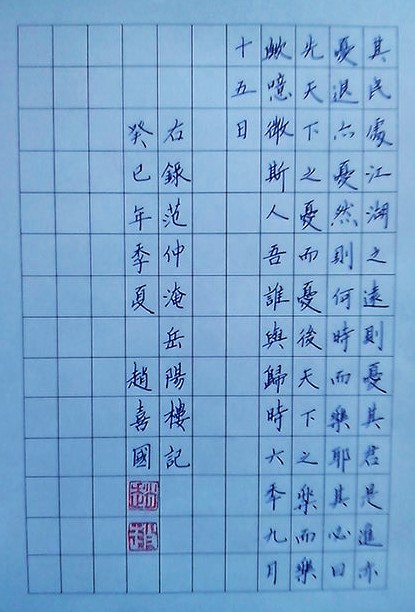 其民處江湖之遠則憂其君是進亦
憂退亦憂然則何時而樂耶其必曰
先天下之憂而憂後天下之樂而樂
歟噫微斯人吾誰與歸時六年九月
十五日
右録范仲淹岳陽樓記
癸巳年季夏 趙喜國